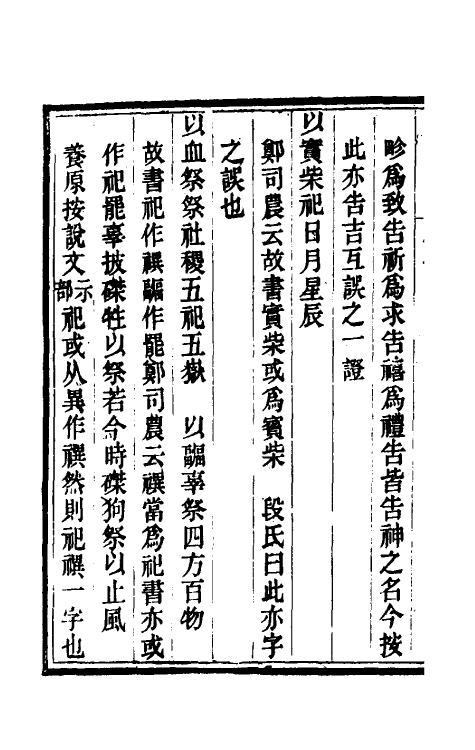 畛為致告祈為求告禧為禮告皆告神之名今按
此亦告吉互誤之一證
以實柴祀日月星辰
鄭司農云故書實柴或為賓柴　段氏曰此亦字
之誤也
以血祭祭社稷五祀五嶽　以疈辜祭四方百物
故書祀作禩疈作罷鄭司農云禩當為祀書亦或
作祀罷辜披磔牲以祭若今時磔狗祭以止風
養原按說文示部祀或从異作禩然則祀禩一字也